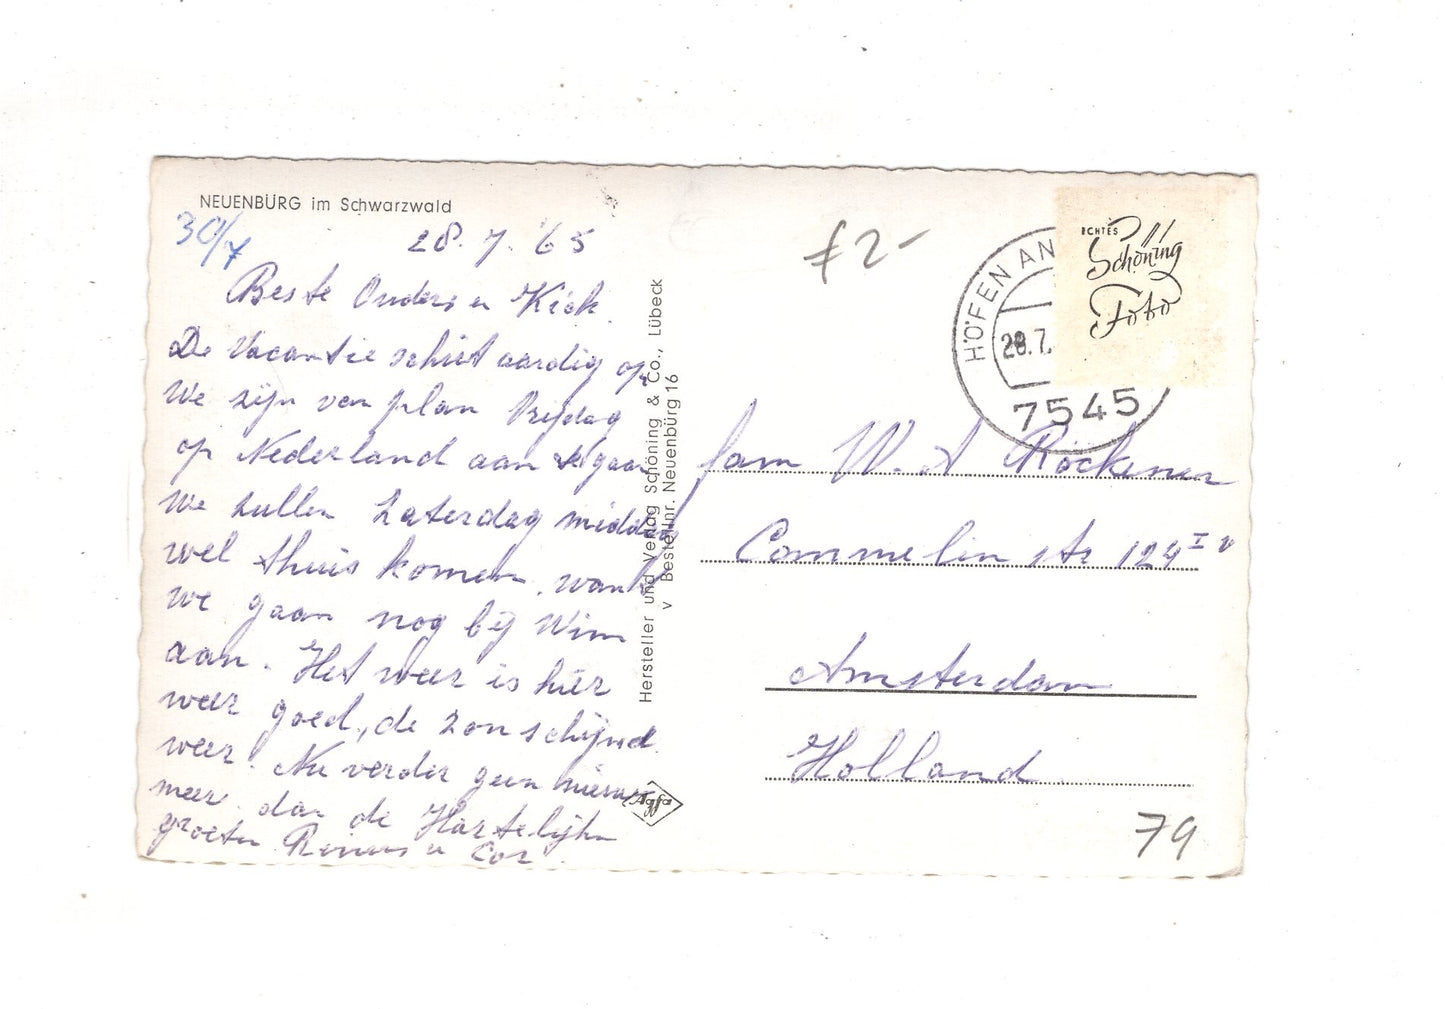 NEUENBÜRG im Schwarzwald
30/7
28.7.'65
Beste Ouders en Kick
De Vacantie schiet aardig op
We zijn van plan Vrijdag
op Nederland aan te gaan
We zullen Zaterdag middag
wel thuis komen, want
we gaan nog bij Wim
aan. Het weer is hier
weer goed, de zon schijnd
weer. Nu verder geen nieuws
meer dan de Hartelijke
groeten Reinus en Cor.
Hersteller und Verlag Schöning & Co., Lübeck
v Bestellnr. Neuenbürg 16
Agfa
f 2-
HÖFEN AN
28.7.
7545
ECHTES
Schöning
Foto
fam W. A Röckener
Commelin str 124 I v
Amsterdam
Holland
79